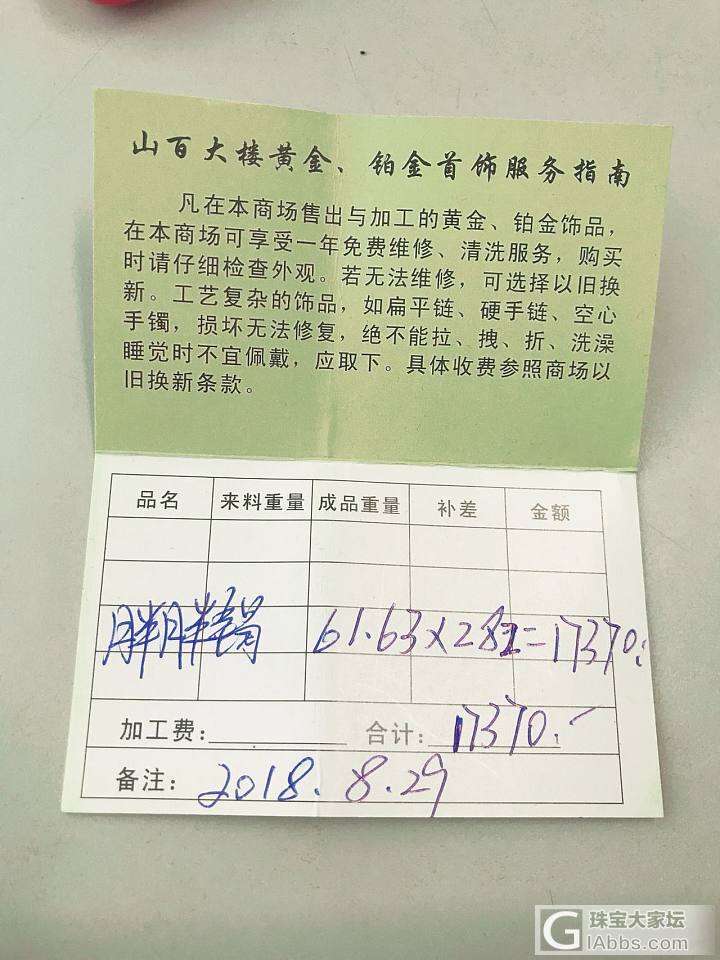 山百大楼黄金、铂金首饰服务指南
凡在本商场售出与加工的黄金、铂金饰品，
在本商场可享受一年免费维修、清洗服务，购买
时请仔细检查外观。若无法维修，可选择以旧换
新。工艺复杂的饰品，如扁平链、硬手链、空心
手镯，损坏无法修复，绝不能拉、拽、折、洗澡
睡觉时不宜佩戴，应取下。具体收费参照商场以
旧换新条款。
品名 来料重量 成品重量 补差 金额
胖胖镯 61.63×282=17370.
加工费： 合计：17370.-
备注：2018.8.29
珠宝大家坛
GIAbbs.com